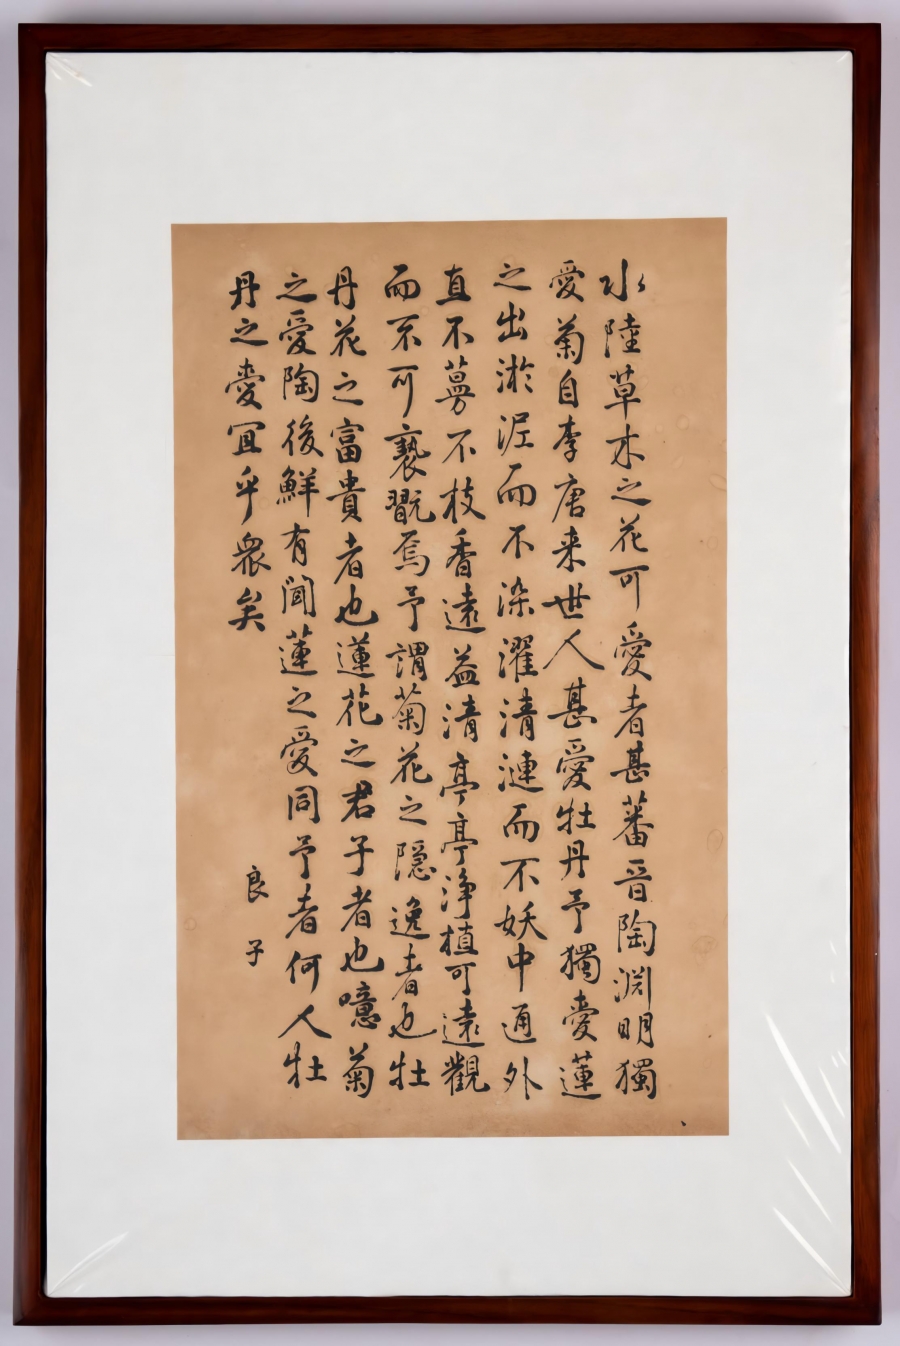 水陸草木之花可愛者甚蕃晉陶淵明獨
愛菊自李唐来世人甚愛牡丹予獨愛蓮
之出淤泥而不染濯清漣而不妖中通外
直不蔓不枝香遠益清亭亭淨植可遠觀
而不可褻翫焉予謂菊花之隠逸者也牡
丹花之富貴者也蓮花之君子者也噫菊
之愛陶後鮮有聞蓮之愛同予者何人牡
丹之愛宜乎衆矣
良子